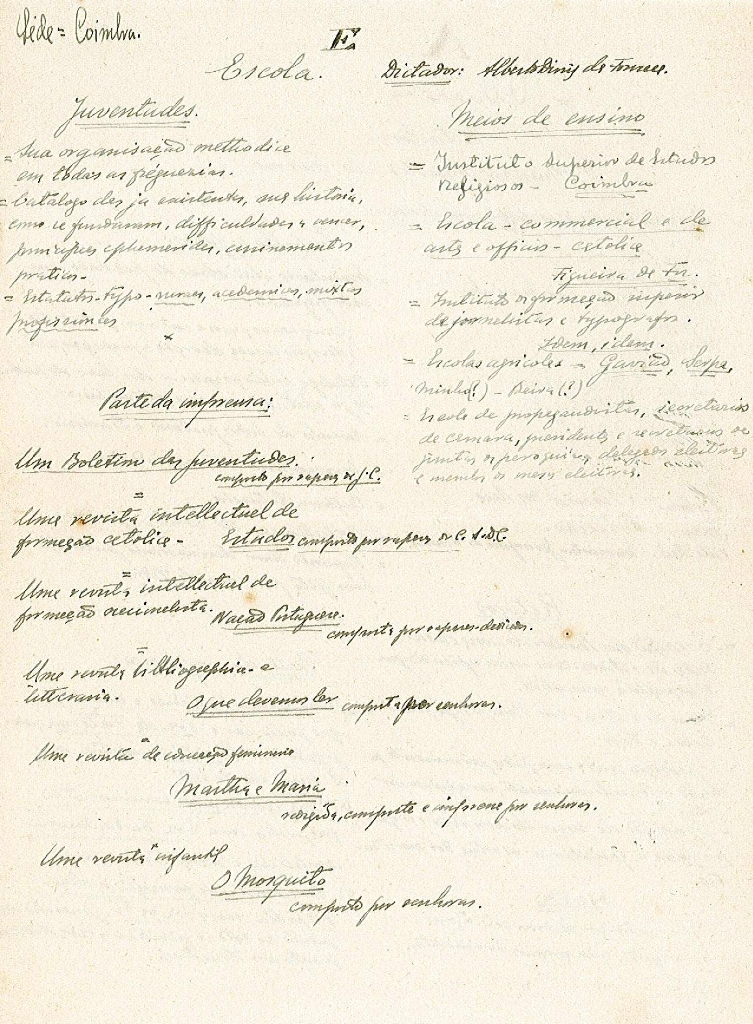 Séde = Coimbra.
E.
Escola.
Dictador: Alberto Diniz da Fonseca.
Juventudes.
= Sua organisação methodica
em todas as fréguezias.
= Catálogo das já existentes, sua história,
como se fundaram, difficuldades a vencer,
principaes ephemerides, ensinamentos
praticos.
= Estatutos-typo - ruraes, academicos, mixtos
profissionaes
x
Parte da imprensa:
Um Boletim das Juventudes.
composto por rapazes da J.C.
=
Uma revista intellectual de
formação catolica - Estudos composta por rapazes do C.A.D.C.
=
Uma revista intellectual de
formação nacionalista. Nação Portuguesa.
composta por rapazes
=
Uma revista bibliographica e
litteraria.
O que devemos ler composta por senhoras.
=
Uma revista de educação feminina
Martha e Maria
redigida, composta e impressa por senhoras.
=
Uma revista infantil
O Mosquito
composto por senhoras.
Meios de ensino
= Instituto Superior de Estudos
religiosos - Coimbra
= Escola - commercial e de
artes e officios - catolica
Figueira da Foz.
= Instituto de formação superior
de jornalistas e typografos.
Idem, idem.
= Escolas agricolas - Gavião, Serpa,
Minho(?) - Beira(?)
= Escola de propagandistas, secretarios
de camara, presidentes e secretarios de
juntas de paroquia, delegados eleitoraes
e membros de mesas eleitoraes.